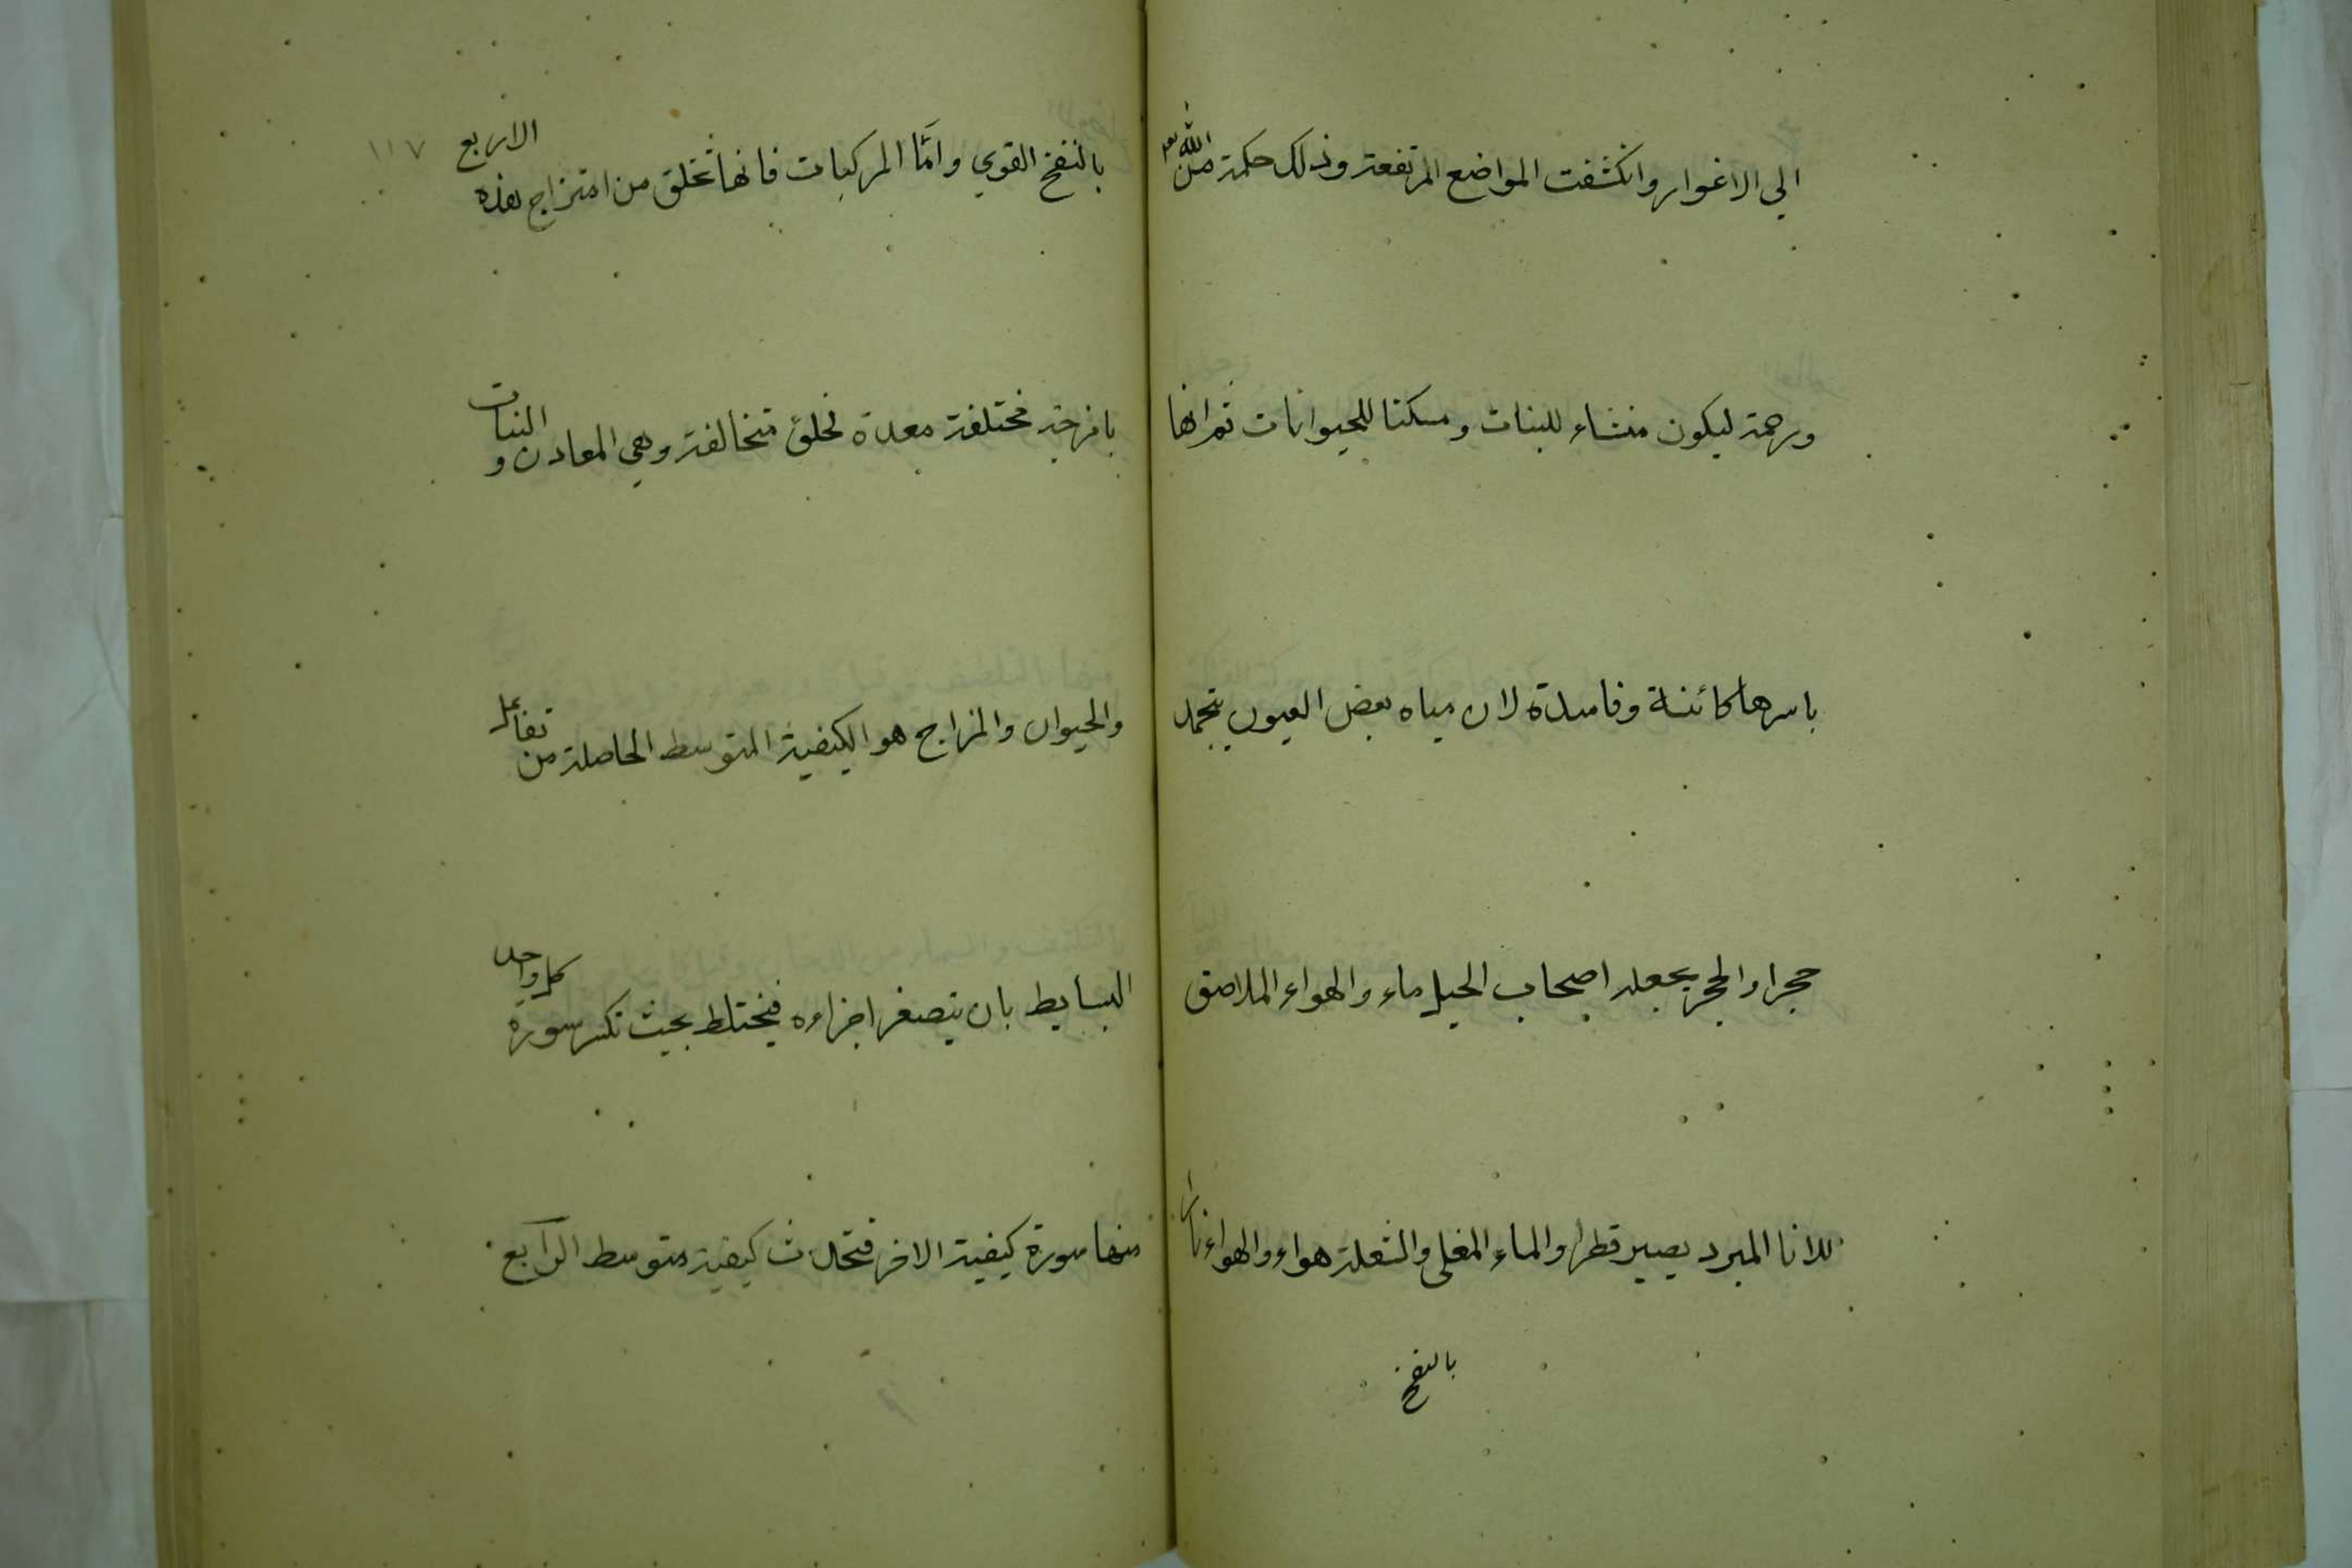 الي الاغوار وانكشفت المواضع المرتفعة وذلك حكمة من الله تعم
ورحمة ليكون منشاء للنبات ومسكنا للحيوانات ثم انها
باسرها كائنة وفاسدة لان مياه بعض العيون يتجمد
حجرا والحجر يجعله اصحاب الحيل ماء والهواء الملاصق
للانا المبرد يصير قطرا والماء المغلي والشعلة هواء والهواء نارا
بالنفخ
١١٧
بالنفخ القوي وامّا المركبات فانها تخلق من امتزاج هذه الاربع
بامزجة مختلفة معدة لخلق متخالفة وهي المعادن و النبات
والحيوان والمزاج هو الكيفية المتوسط الحاصلة من تفاعل
البسايط بان يتصغر اجزاءه فيختلط بحيث تكسر سورة كل واحد
منها سورة كيفية الاخر فتحدث كيفية متوسط الرابع